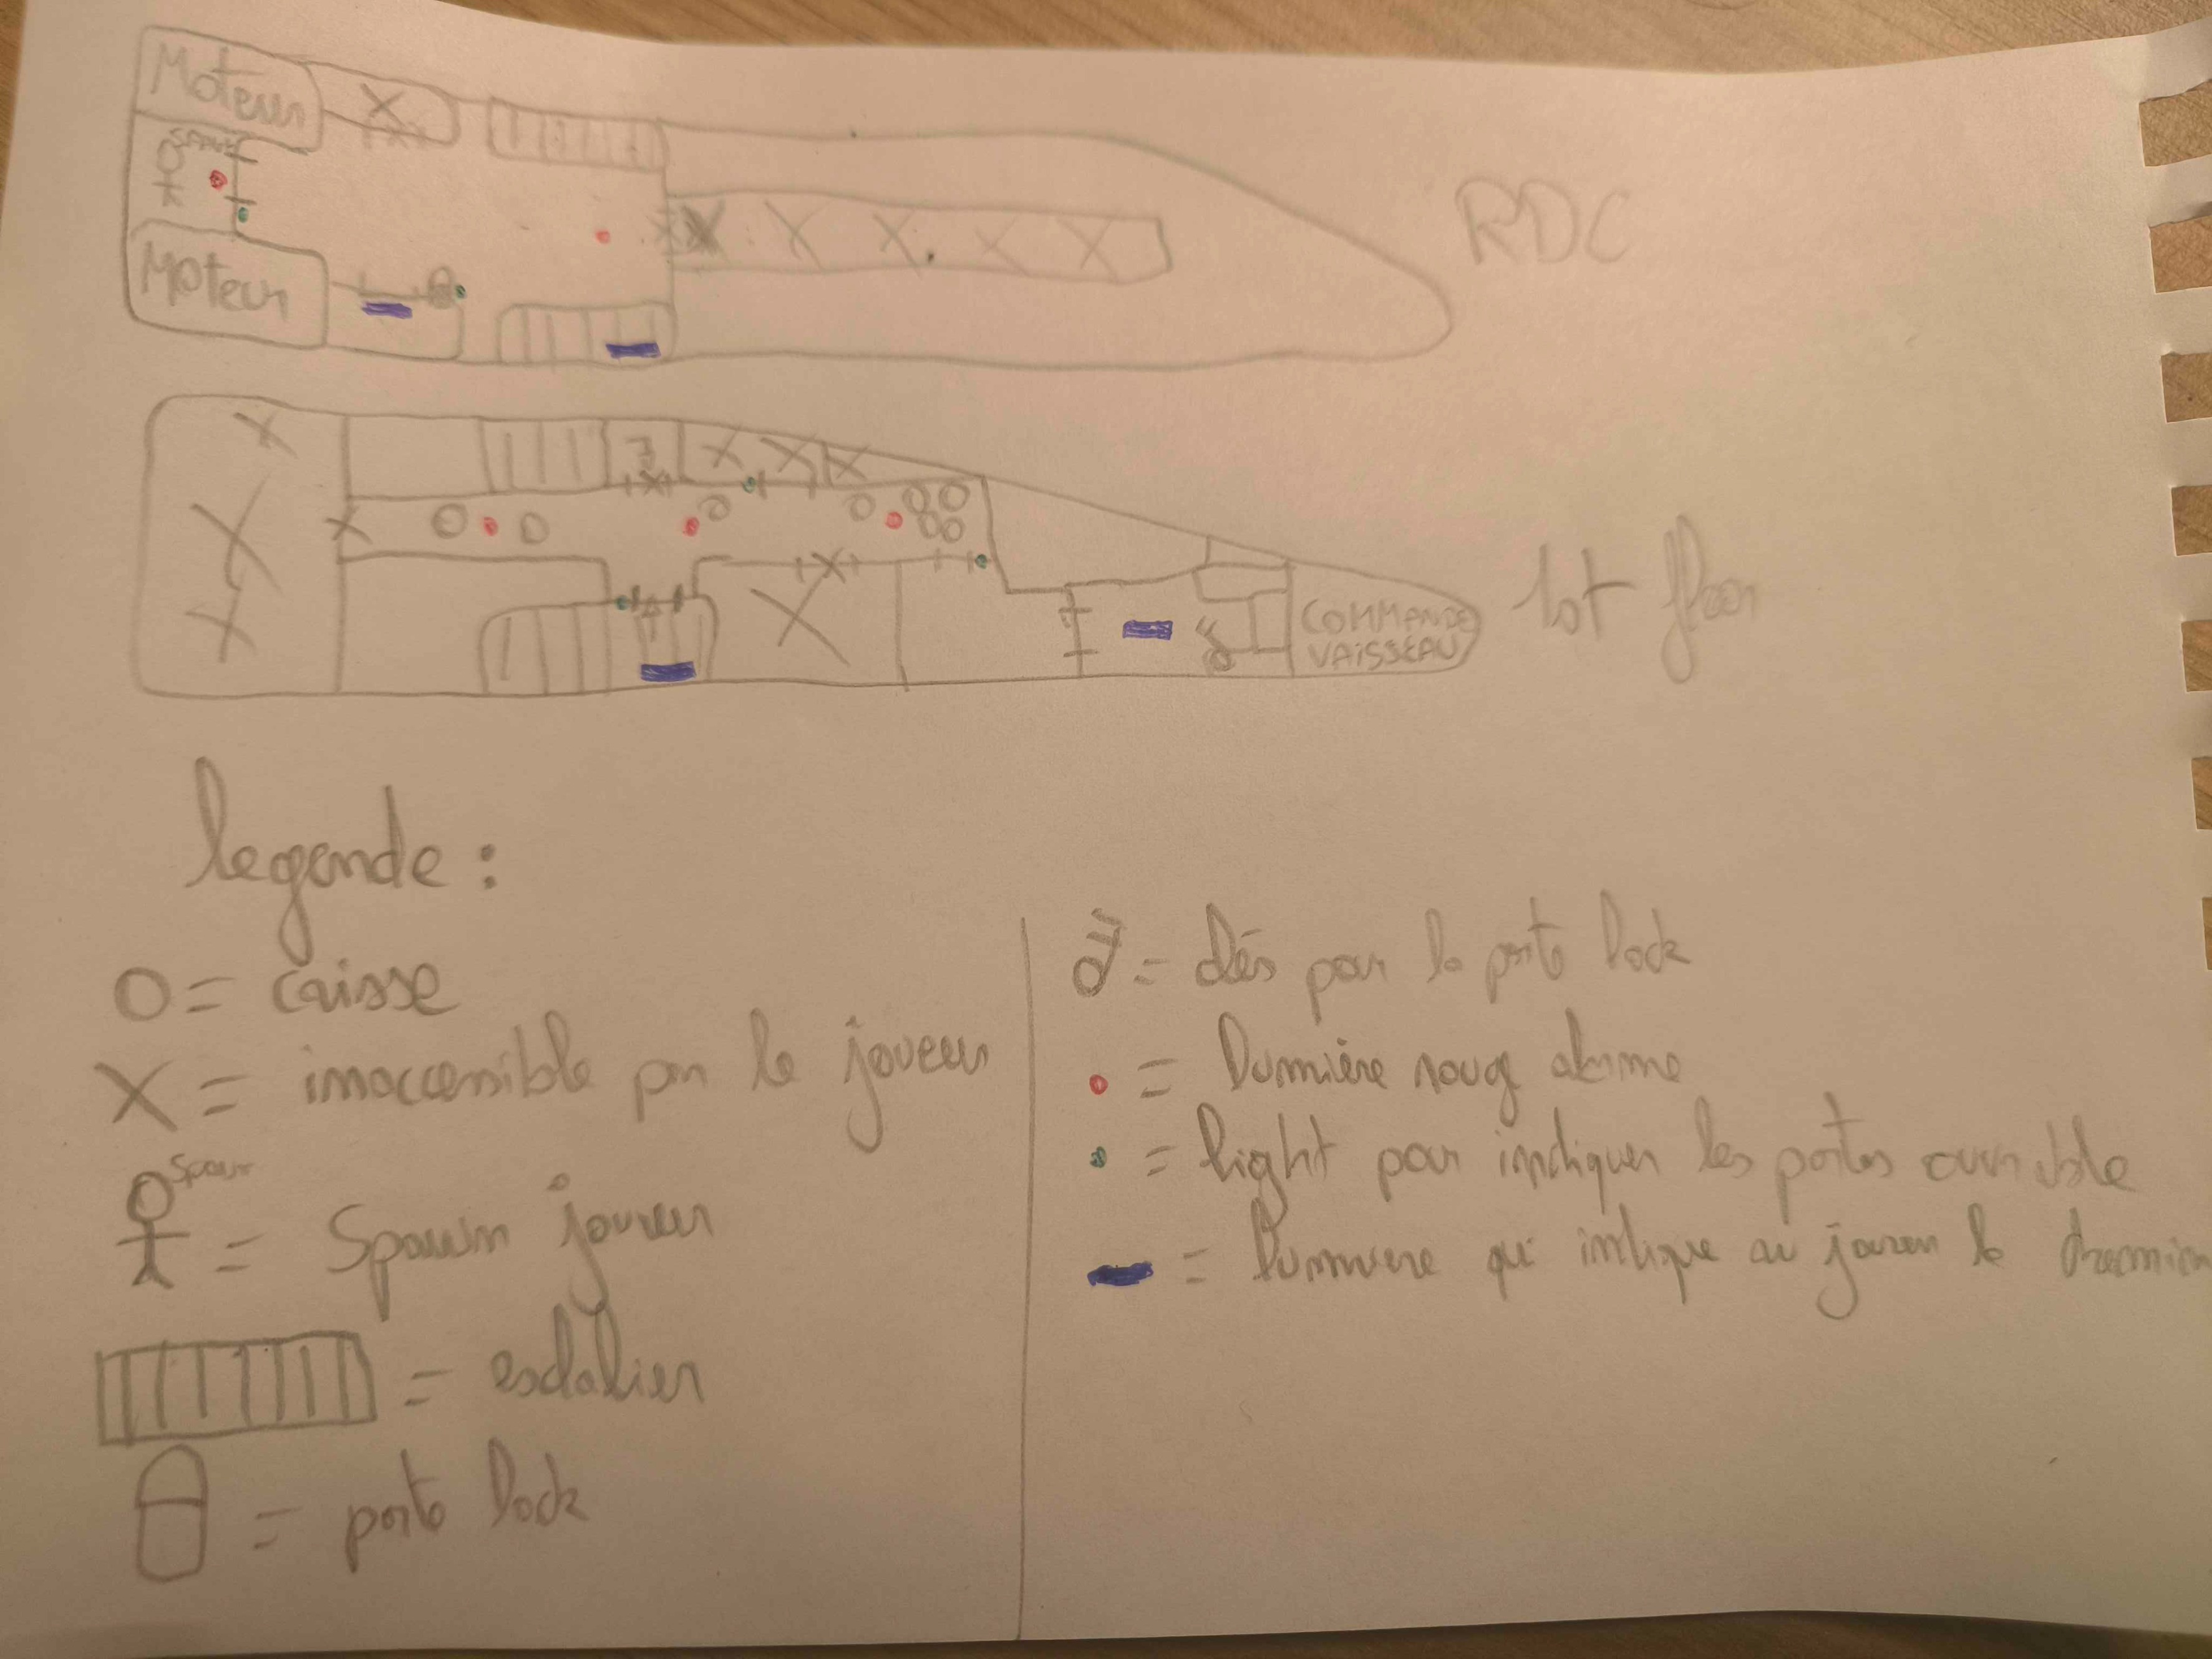 Moteur
Spawn
Moteur
RDC
1st floor
COMMANDE
VAISSEAU
legende :
O = caisse
X = inaccessible par le joueur
Spawn
= Spawn joueur
= escalier
= porte lock
= clés pour la porte lock
= lumière rouge alarme
= light pour indiquer les portes ouvrable
= lumiere qui indique au joueur le chemin